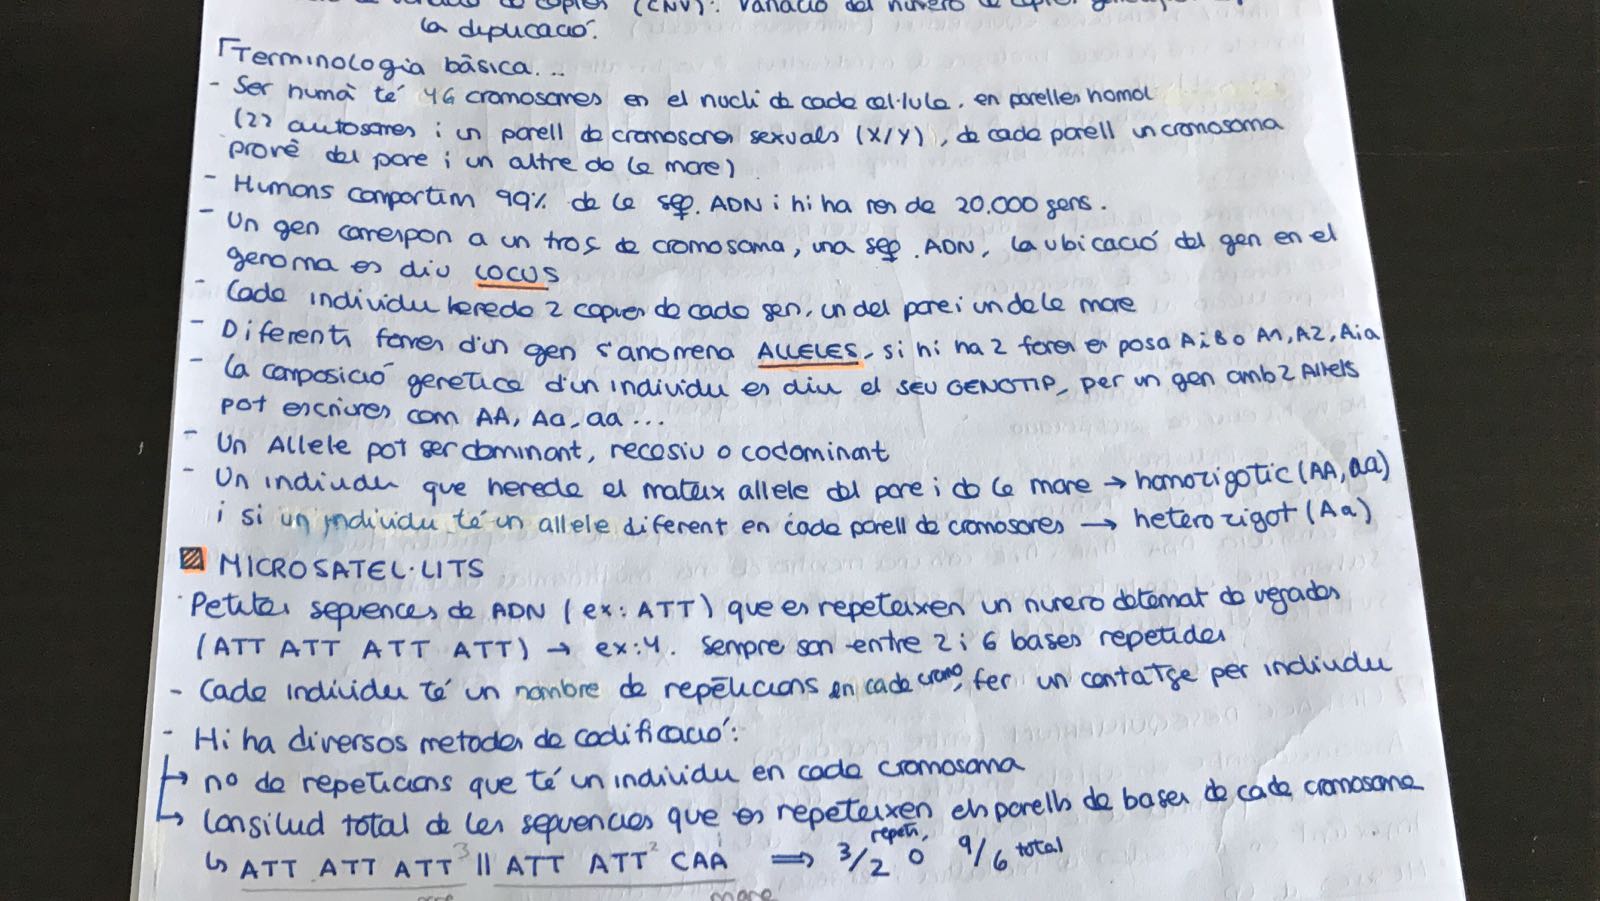 de copies (CNV): variació del número de copies
la duplicació.
Terminologia bàsica...
- Ser humà té 46 cromosomes en el nucli de cada cel·lula. en parelles homol
(22 autosomes i un parell de cromosomes sexuals (X/Y), de cada parell un cromosoma
prové del pare i un altre de la mare)
- Humans compartim 99% de la seq. ADN i hi ha res de 20.000 gens.
- Un gen correspon a un tros de cromosoma, una seq. ADN. La ubicació del gen en el
genoma es diu LOCUS
- Cada individu hereda 2 copies de cada gen, un del pare i un de la mare
- Diferents formes d'un gen s'anomena ALLELES, si hi ha 2 formes es posa A i B o A1, A2, A i a
- La composició genètica d'un individu es diu el SEU GENOTIP, per un gen amb 2 Allels
pot escriures com AA, Aa, aa...
- Un Allele pot ser dominant, recesiu o codominant
- Un individu que hereda el mateix allele del pare i de la mare → homozigotic (AA, aa)
i si un individu té un allele diferent en cada parell de cromosomes → heterozigot (Aa)
MICROSATEL·LITS
Petites sequences de ADN (ex: ATT) que es repeteixen un numero detemat de vegades
(ATT ATT ATT ATT) → ex: 4. Sempre son entre 2 i 6 bases repetides
- Cada individu té un nombre de repeticions en cada cromo, fer un contatge per individu
- Hi ha diversos metodes de codificació:
→ nº de repeticions que té un individu en cada cromosoma
→ Longitud total de les sequencies que es repeteixen els parells de bases de cada cromosoma
↳ ATT ATT ATT 3 || ATT ATT 2 CAA ⟹ 3/2 repeti. ó 9/6 total
mare